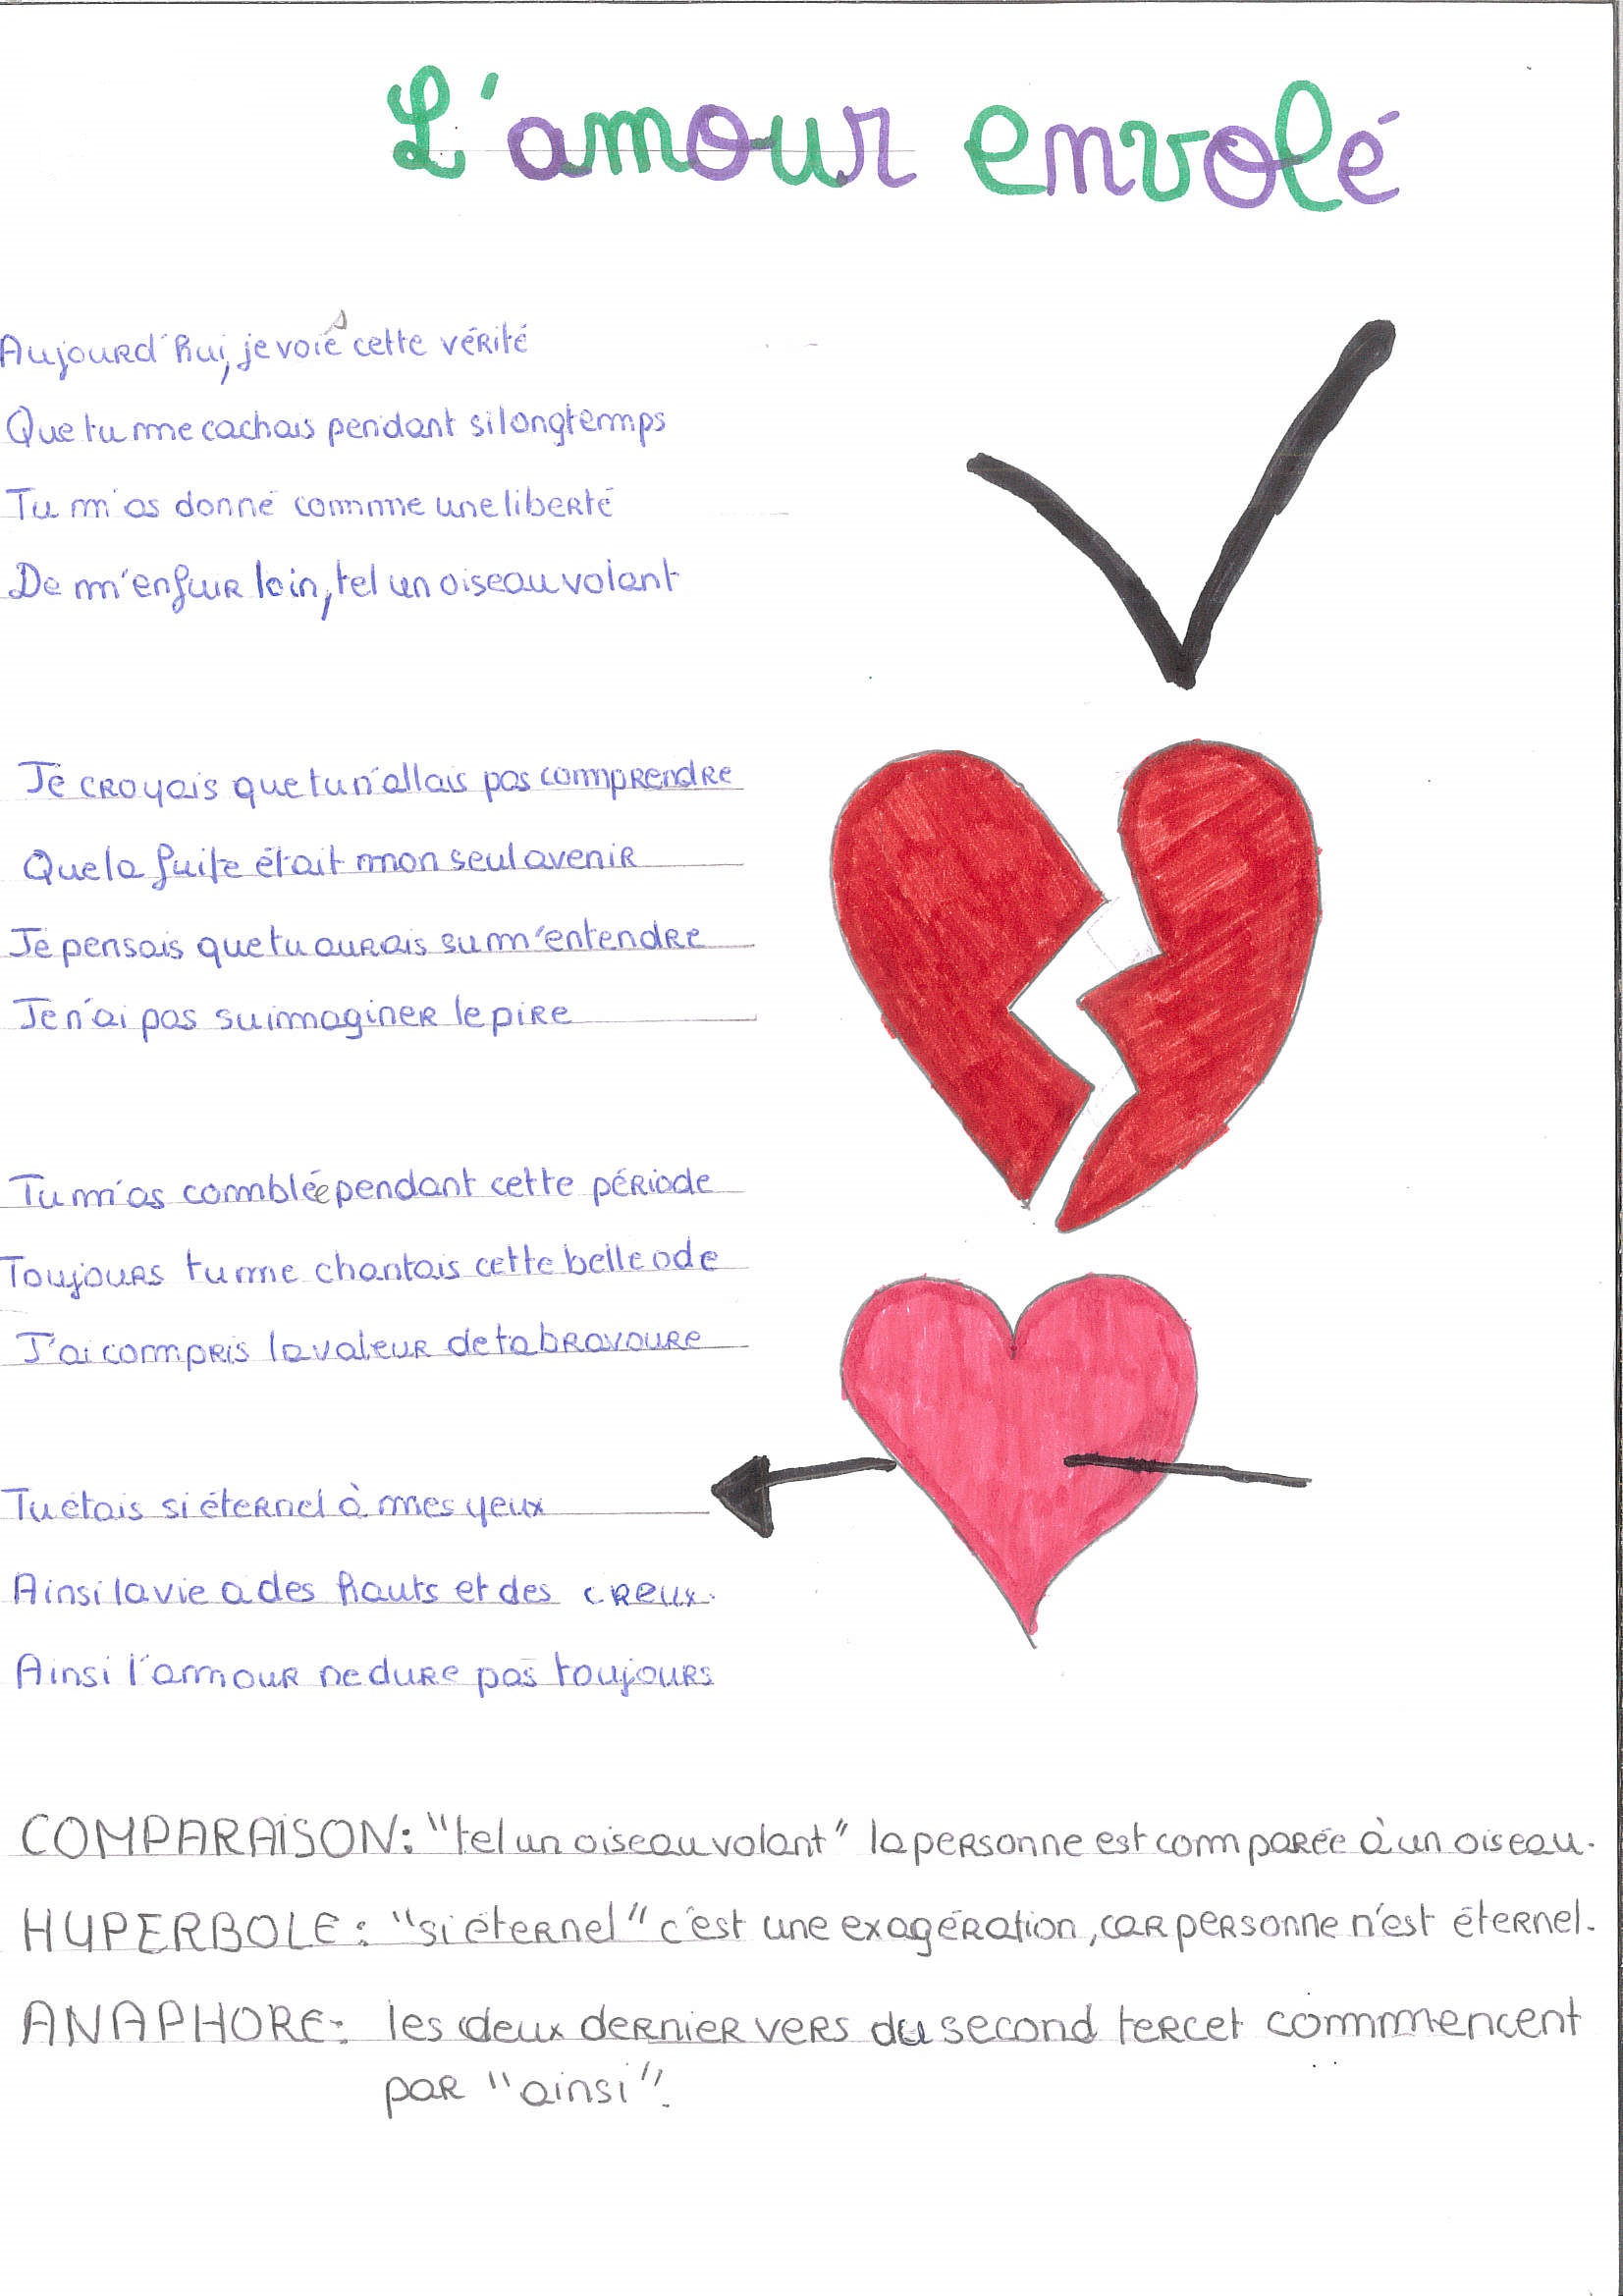 L'amour envolé
Aujourd'hui, je voie s cette vérité
Que tu me cachais pendant si longtemps
Tu m'as donné comme une liberté
De m'enfuir loin, tel un oiseau volant
Je croyais que tu n'allais pas comprendre
Que la fuite était mon seul avenir
Je pensais que tu aurais su m'entendre
Je n'ai pas su imaginer le pire
Tu m'as comblée pendant cette période
Toujours tu me chantais cette belle ode
J'ai compris la valeur de ta bravoure
Tu étais si éternel à mes yeux
Ainsi la vie a des hauts et des creux.
Ainsi l'amour ne dure pas toujours
COMPARAISON: "tel un oiseau volant" la personne est comparée à un oiseau.
HYPERBOLE: "si éternel" c'est une exagération, car personne n'est éternel.
ANAPHORE: les deux dernier vers du second tercet commencent
par "ainsi".